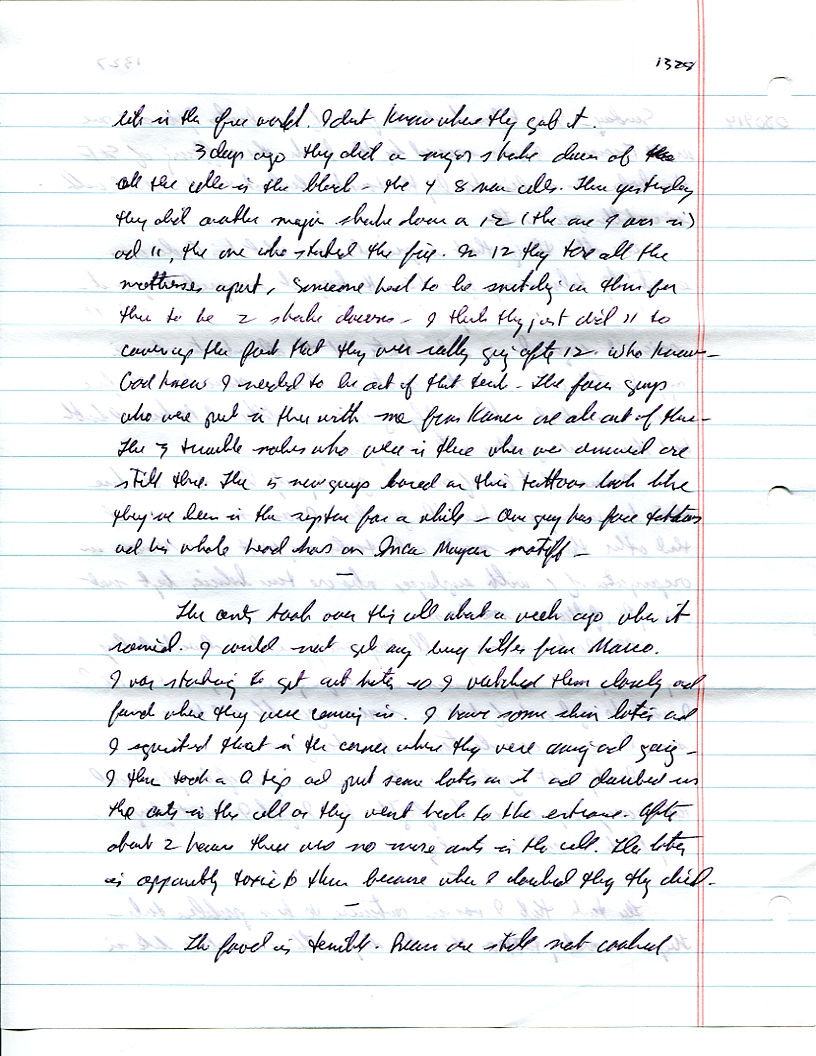 1328
life in the free world. I dont know where they got it.
3 days ago they did a major shake down of the
all the cells in the block - the 4 8 man cells. Then yesterday
they did another major shake down on 12 (the one I was in)
and 11, the one who started the fire. In 12 they tore all the
mattresses apart, Someone had to be snitching on them for
there to be 2 shake downs - I think they just did 11 to
cover up the fact that they were really going after 12. Who knows -
God knew I needed to be out of that tank - The four guys
who were put in there with me from are all out of there -
The 3 trouble makers who were in there when we arrived are
still there. The 5 new guys based on their tattoos look like
they've been in the system for a while - One guy has face tattoos
and his whole head has an Inca Mayan motiff -
The ants took over the cell about a week ago when it
rained. I could not get any bug killer from Marco.
I was starting to get ant bites so I watched them closely and
found where they were coming in. I have some skin lotion and
I squirted that in the corner where they were coming and going -
I then took a Q tip and put some lotion on it and daubed
the ants in the cell as they went back to the entrance. After
about 2 hours there was no more ants in the cell. The lotion
is apparently toxic to them because when I daubed they they died.
The food is terrible. Beans are still not cooked